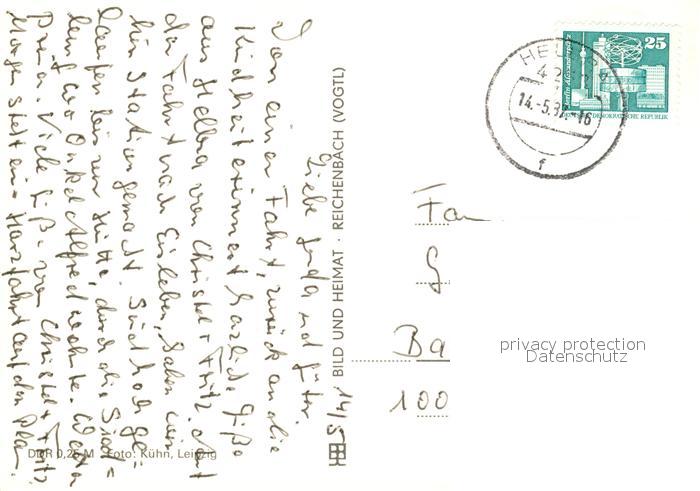 14/5
Liebe und Günter.
Von einer Fahrt, zurück an die
Kindheit erinnert herzliche Grüße
aus Helbra von Christel + Fritz. Auf
der Fahrt nach Eisleben, haben wir
hier Station gemacht. Sind hoch ge=
laufen bis zur Hütte, durch die Sied=
lung wo Onkel Alfred wohnte. Wetter
prima. Viele Grüße von Christel + Fritz.
Morgen steht eine Harzfahrt auf dem Plan.
BILD UND HEIMAT · REICHENBACH (VOGTL)
DDR 0,25 M Foto: Kühn, Leipzig
HELBRA
14.-5.87.-16
f
25
Berlin, Alexanderplatz
DEUTSCHE DEMOKRATISCHE REPUBLIK
Fam
G
Ba
100
privacy protection
Datenschutz